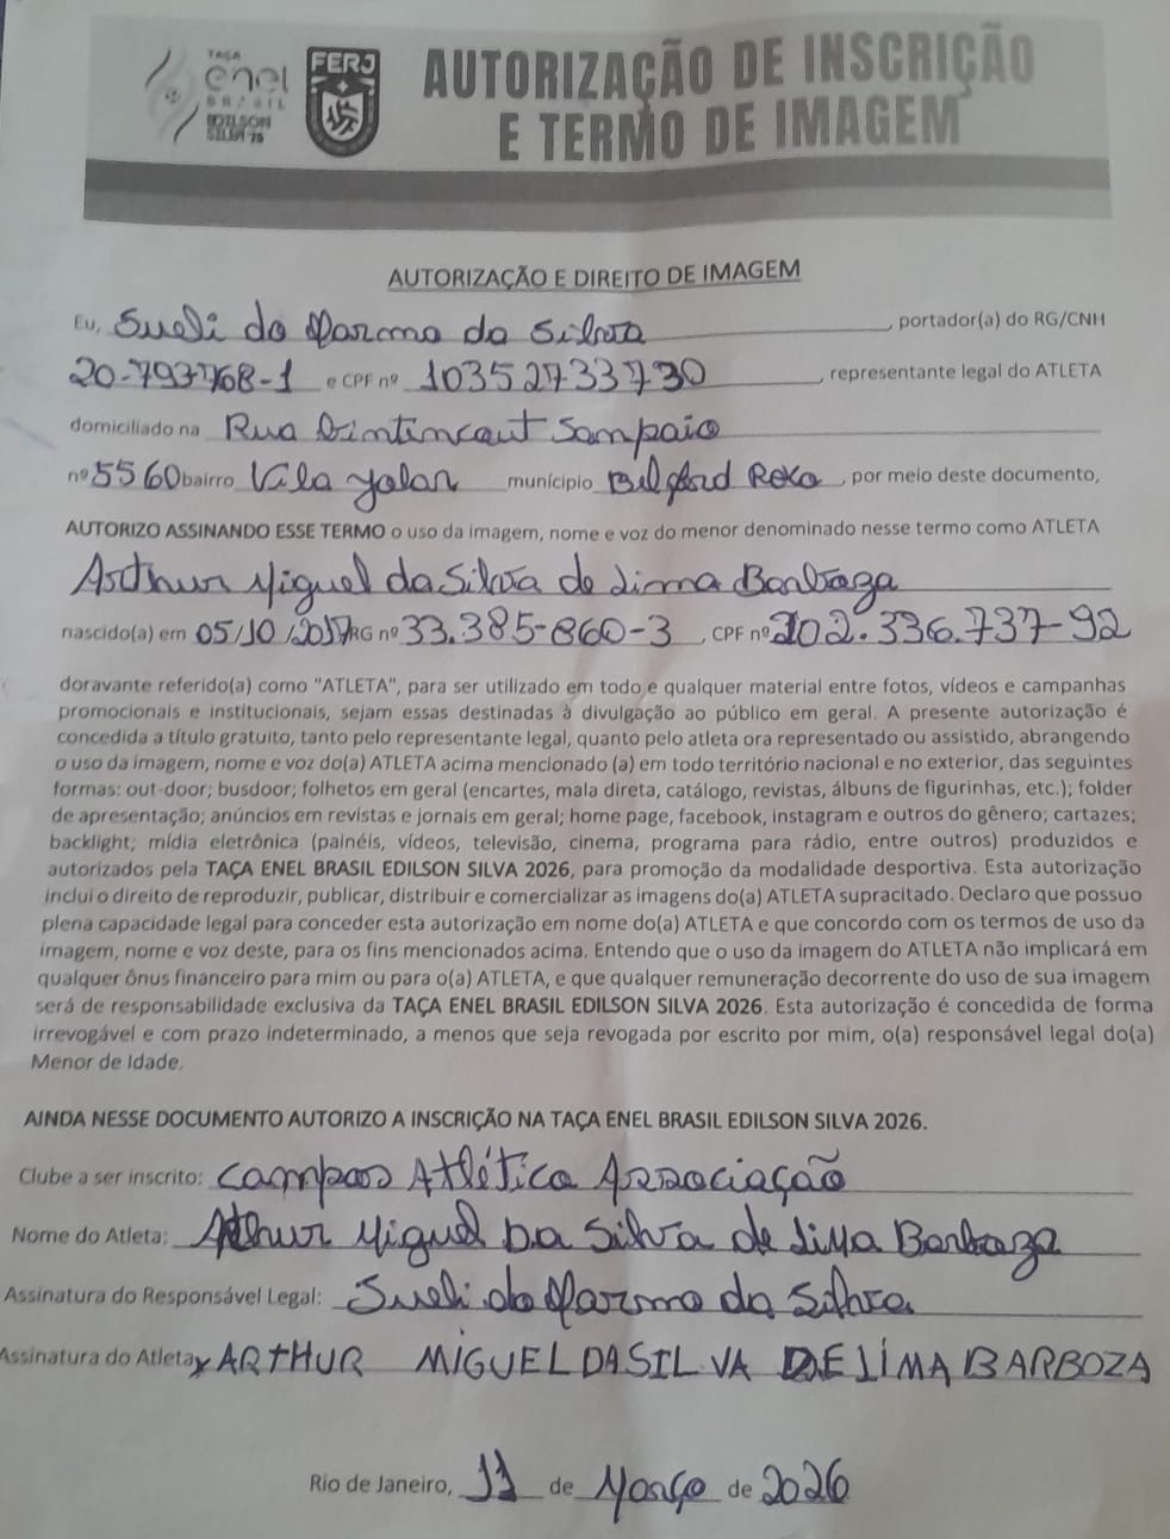 TAÇA
enel
BRASIL
EDILSON
SILVA
FERJ
AUTORIZAÇÃO DE INSCRIÇÃO
E TERMO DE IMAGEM
AUTORIZAÇÃO E DIREITO DE IMAGEM
Eu, Sueli do Carmo da Silva, portador(a) do RG/CNH
20-793768-1 e CPF nº 10352733730, representante legal do ATLETA
domiciliado na Rua Sampaio
nº 5560 bairro Vila Yolan município Belford Roxo, por meio deste documento,
AUTORIZO ASSINANDO ESSE TERMO o uso da imagem, nome e voz do menor denominado nesse termo como ATLETA
Arthur Miguel da Silva de Lima Barboza
nascido(a) em 05/10/2017 RG nº 33.385-860-3, CPF nº 202.336.737-92
doravante referido(a) como "ATLETA", para ser utilizado em todo e qualquer material entre fotos, vídeos e campanhas
promocionais e institucionais, sejam essas destinadas à divulgação ao público em geral. A presente autorização é
concedida a título gratuito, tanto pelo representante legal, quanto pelo atleta ora representado ou assistido, abrangendo
o uso da imagem, nome e voz do(a) ATLETA acima mencionado (a) em todo território nacional e no exterior, das seguintes
formas: out-door; busdoor; folhetos em geral (encartes, mala direta, catálogo, revistas, álbuns de figurinhas, etc.); folder
de apresentação; anúncios em revistas e jornais em geral; home page, facebook, instagram e outros do gênero; cartazes;
backlight; mídia eletrônica (painéis, vídeos, televisão, cinema, programa para rádio, entre outros) produzidos e
autorizados pela TAÇA ENEL BRASIL EDILSON SILVA 2026, para promoção da modalidade desportiva. Esta autorização
inclui o direito de reproduzir, publicar, distribuir e comercializar as imagens do(a) ATLETA supracitado. Declaro que possuo
plena capacidade legal para conceder esta autorização em nome do(a) ATLETA e que concordo com os termos de uso da
imagem, nome e voz deste, para os fins mencionados acima. Entendo que o uso da imagem do ATLETA não implicará em
qualquer ônus financeiro para mim ou para o(a) ATLETA, e que qualquer remuneração decorrente do uso de sua imagem
será de responsabilidade exclusiva da TAÇA ENEL BRASIL EDILSON SILVA 2026. Esta autorização é concedida de forma
irrevogável e com prazo indeterminado, a menos que seja revogada por escrito por mim, o(a) responsável legal do(a)
Menor de Idade.
AINDA NESSE DOCUMENTO AUTORIZO A INSCRIÇÃO NA TAÇA ENEL BRASIL EDILSON SILVA 2026.
Clube a ser inscrito: Campos Atlético Associação
Nome do Atleta: Arthur Miguel Da Silva de Lima Barboza
Assinatura do Responsável Legal: Sueli do Carmo da Silva
Assinatura do Atleta x ARTHUR MIGUEL DA SILVA DE LIMA BARBOZA
Rio de Janeiro, 11 de Março de 2026